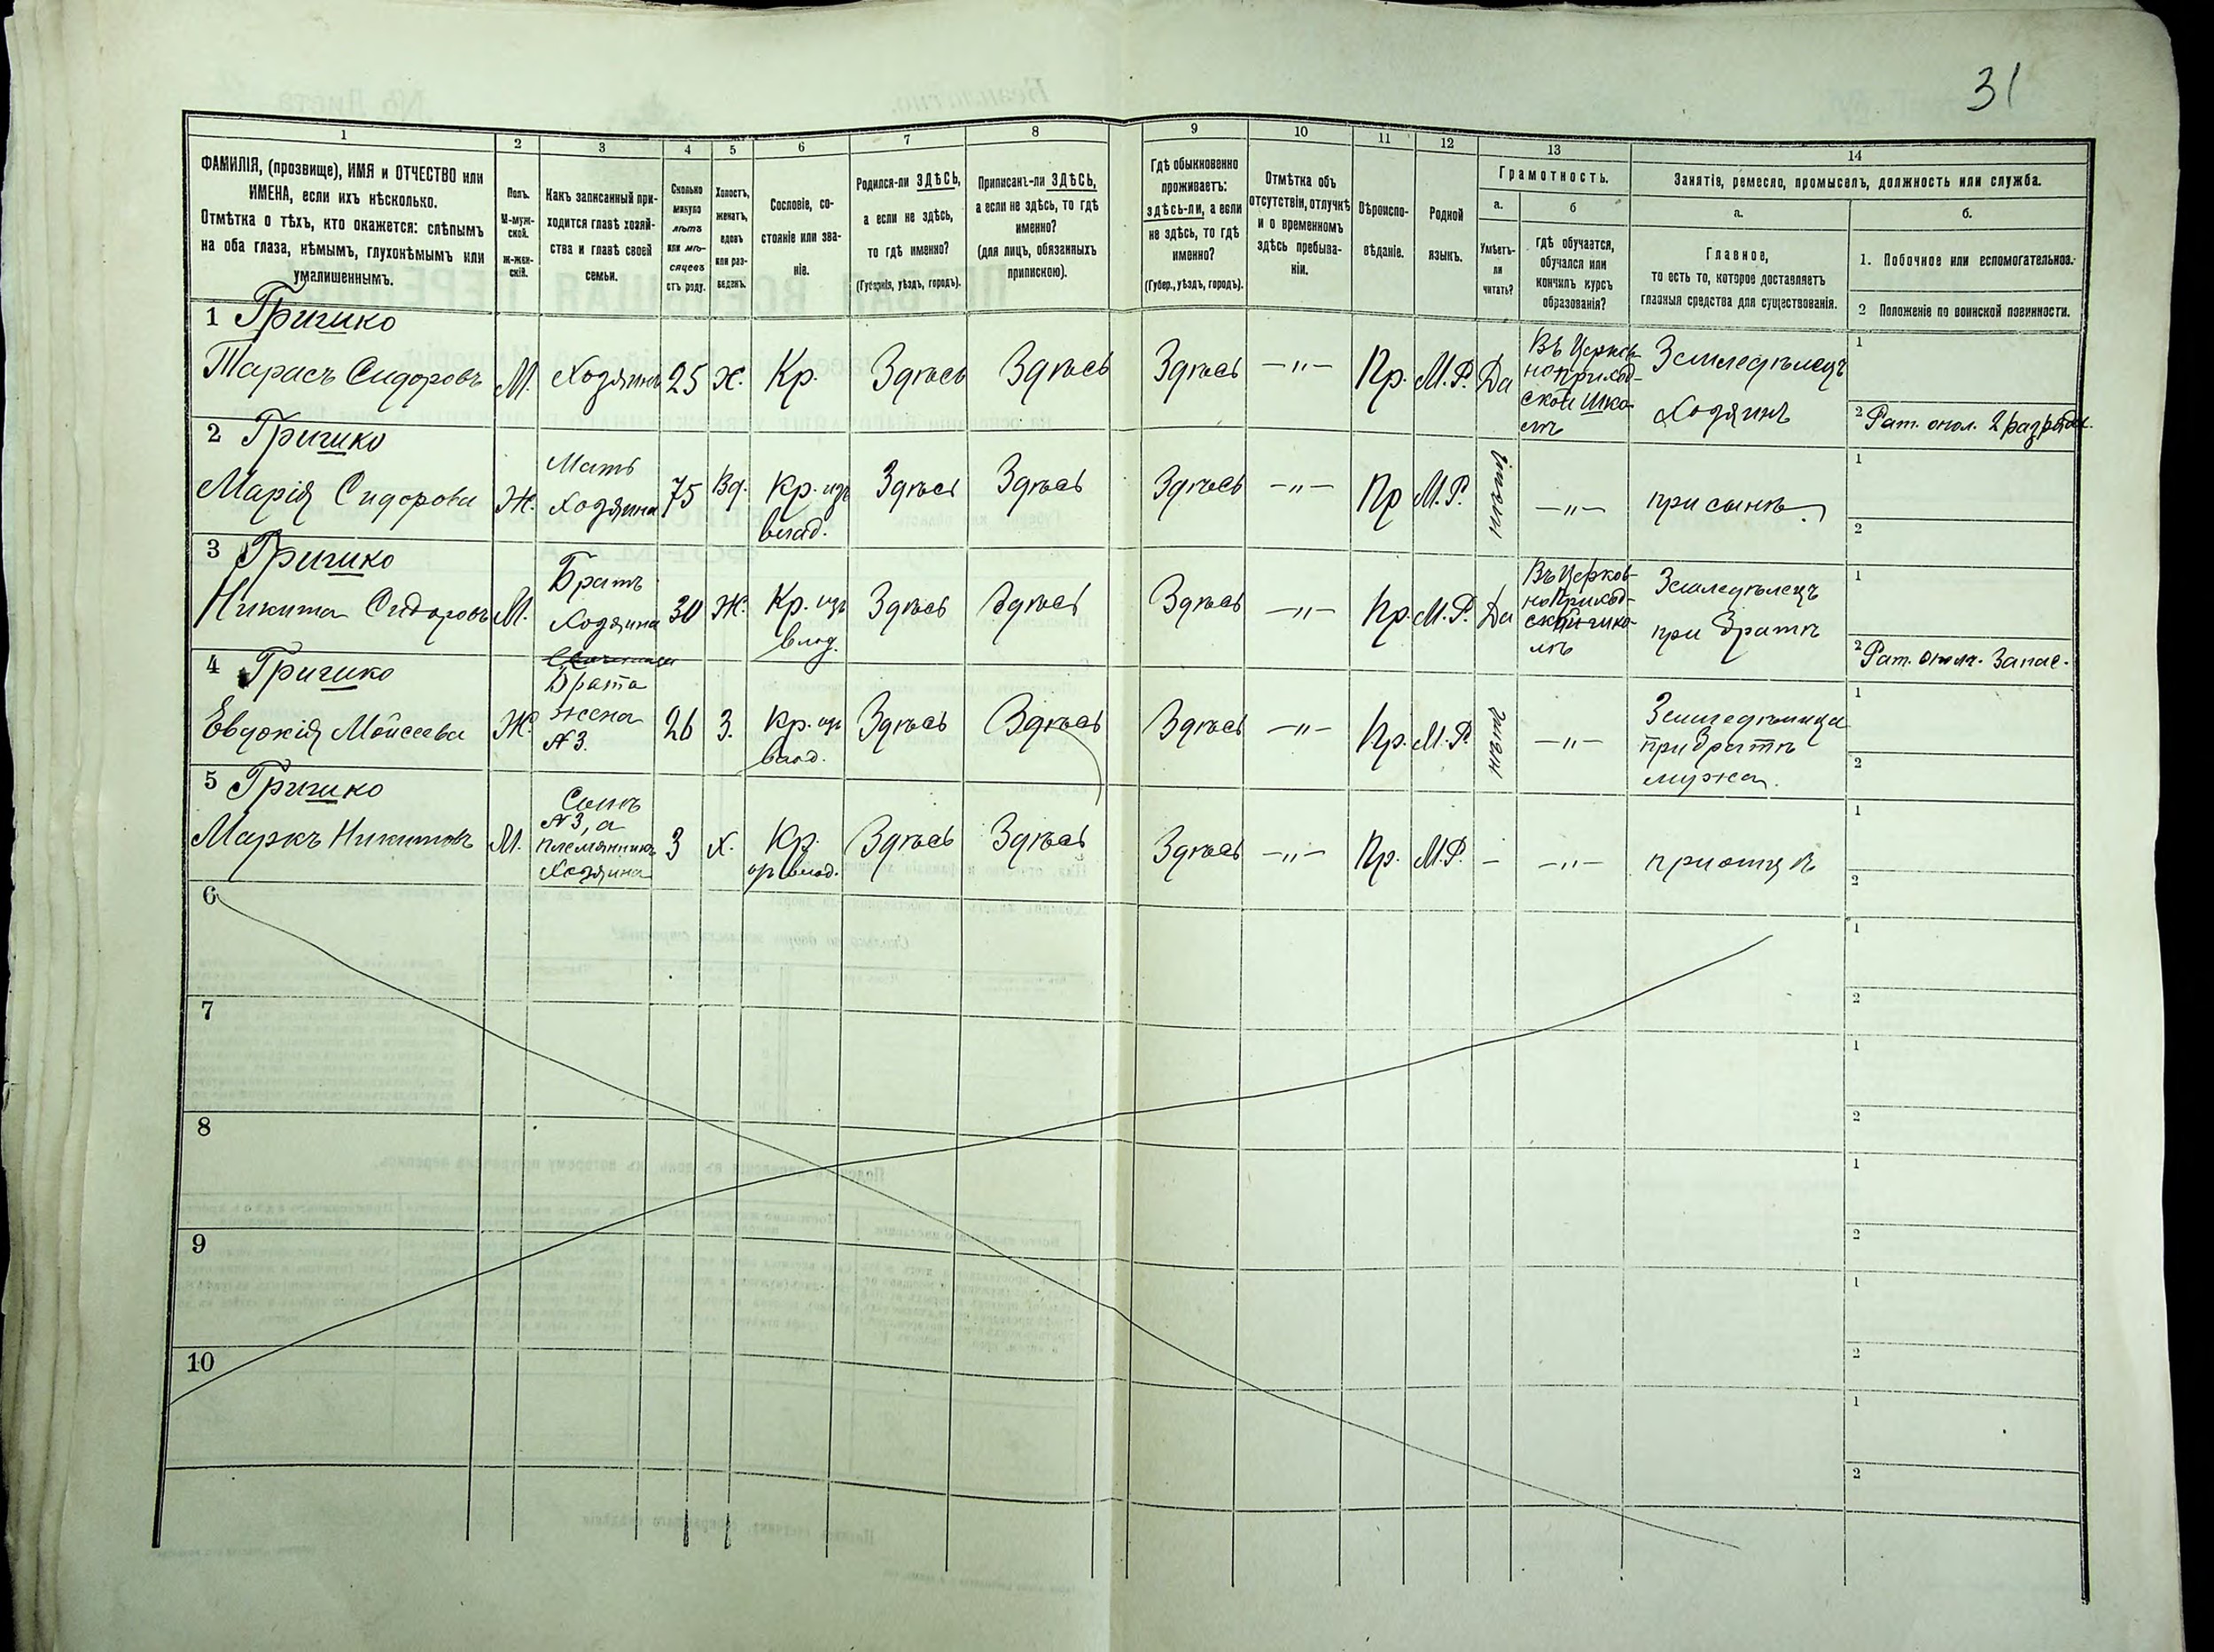 31
1
2
3
4
5
6
7
8
9
10
11
12
13
14
ФАМИЛІЯ, (прозвище), ИМЯ и ОТЧЕСТВО или
ИМЕНА, если ихъ нѣсколько.
Отмѣтка о тѣхъ, кто окажется: слѣпымъ
на оба глаза, нѣмымъ, глухонѣмымъ или
умалишеннымъ.
Полъ.
М-муж-
ской.
Ж-жен-
скій.
Какъ записанный при-
ходится главѣ хозяй-
ства и главѣ своей
семьи.
Сколько
минуло
лѣтъ
или мѣ-
сяцевъ
отъ роду.
Холостъ,
женатъ,
вдовъ
или раз-
веденъ.
Сословіе, со-
стояніе или зва-
ніе.
Родился-ли ЗДѢСЬ,
а если не здѣсь,
то гдѣ именно?
(Губернія, уѣздъ, городъ).
Приписанъ-ли ЗДѢСЬ,
а если не здѣсь, то гдѣ
именно?
(для лицъ, обязанныхъ
припискою).
Гдѣ обыкновенно
проживаетъ:
здѣсь-ли, а если
не здѣсь, то гдѣ
именно?
(Губер., уѣздъ, городъ).
Отмѣтка объ
отсутствіи, отлучкѣ
и о временномъ
здѣсь пребыва-
ніи.
Вѣроиспо-
вѣданіе.
Родной
языкъ.
Грамотность.
а.
Умѣетъ-
ли
читать?
б
Гдѣ обучается,
обучался или
кончилъ курсъ
образованія?
Занятіе, ремесло, промыселъ, должность или служба.
а.
Главное,
то есть то, которое доставляетъ
главныя средства для существованія.
б.
1. Побочное или вспомогательное.
2 Положеніе по воинской повинности.
1 Григико
Тарасъ Сидоровъ М. Хозяинъ 25 Х. Кр. Здѣсь Здѣсь Здѣсь —"— Пр. М.Р. Да
Въ Церков-
ноприход-
ской шко-
лѣ
Земледѣлецъ
Хозяинъ
1
2 Рат. опол. 2 разряда.
2 Григико
Марія Сидорова Ж.
Мать
Хозяина
75 Вд.
Кр. изъ
влад.
Здѣсь Здѣсь Здѣсь —"— Пр М.Р. нѣтъ —"— при сынѣ
1
2
3 Григико
Никита Сидоровъ М.
Братъ
Хозяина
30 Ж.
Кр. изъ
влад.
Здѣсь Здѣсь Здѣсь —"— Пр. М.Р. Да
Въ Церков-
ноприход-
ской шко-
лѣ
Земледѣлецъ
при братѣ
1
2 Рат. опол. Запас.
4 Григико
Евдокія Мойсеева Ж.
Брата
жена
№3.
26 З.
Кр. изъ
влад.
Здѣсь Здѣсь Здѣсь —"— Пр. М.Р. нѣтъ —"—
Земледѣлица
при братѣ
мужа.
1
2
5 Григико
Маркъ Никитовъ М.
Сынъ
№3, а
племянникъ
Хозяина
3 Х.
Кр.
изъ влад.
Здѣсь Здѣсь Здѣсь —"— Пр. М.Р. - —"— при отцѣ
1
2
6
1
2
7
1
2
8
1
2
9
1
2
10
1
2